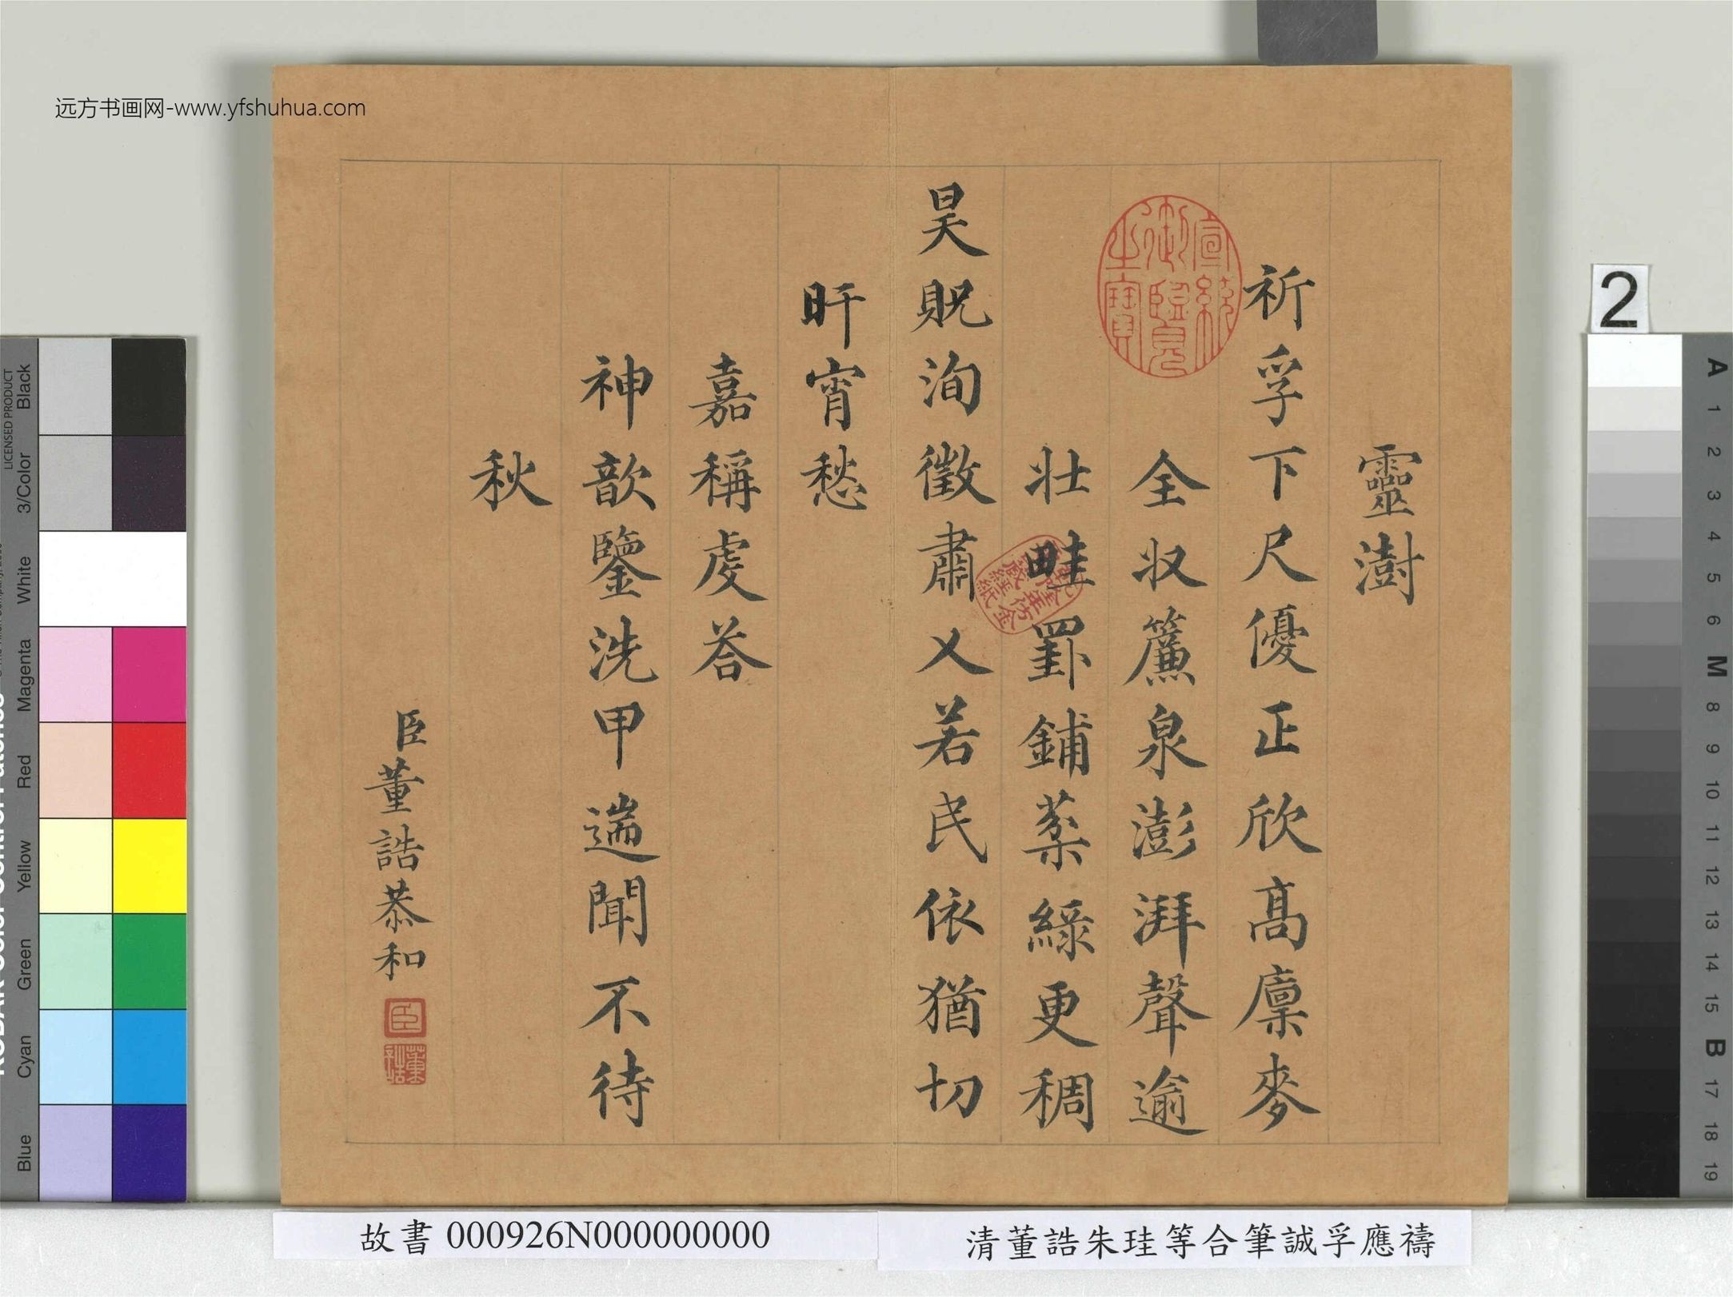 远方书画网-www.yfshuhua.com
靈澍
祈孚下尺優正欣髙廩麥
全収簾泉澎湃聲逾
壯畦罫鋪棻綠更稠
昊貺洵徵肅乂若民依猶切
旰宵愁
嘉稱虔荅
神歆鑒洗甲遄聞不待
秋
臣董誥恭和
宣統御覽之寶
臣
董誥
2
A
1
2
3
4
5
6
M
8
9
10
11
12
13
14
15
B
17
18
19
LICENSED PRODUCT
Black
3/Color
White
Magenta
Red
Yellow
Green
Cyan
Blue
故書 000926N000000000
清董誥朱珪等合筆誠孚應禱